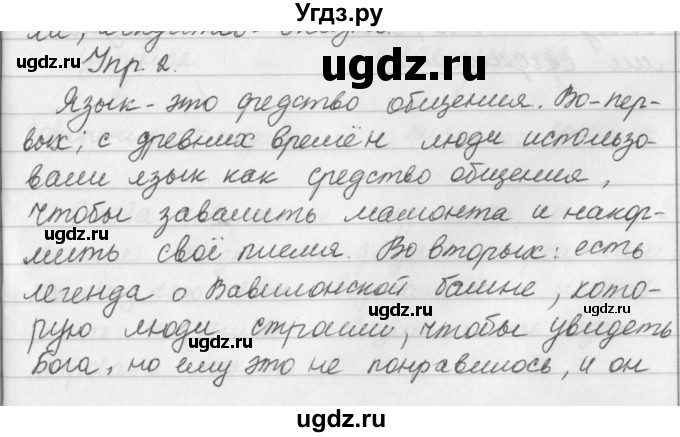 Угдз.ру
Упр. 2.
Язык - это средство общения. Во-пер-
вых, с древних времён люди использо-
вали язык как средство общения,
чтобы завалить мамонта и накор-
мить своё племя. Во вторых: есть
легенда о Вавилонской башне, кото-
рую люди строили, чтобы увидеть
Бога, но ему это не понравилось, и он
ugdz.ru
ugdz.ru
ugdz.ru
ugdz.ru
ugdz.ru
ugdz.ru
ugdz.ru
ugdz.ru
ugdz.ru
ugdz.ru
ugdz.ru